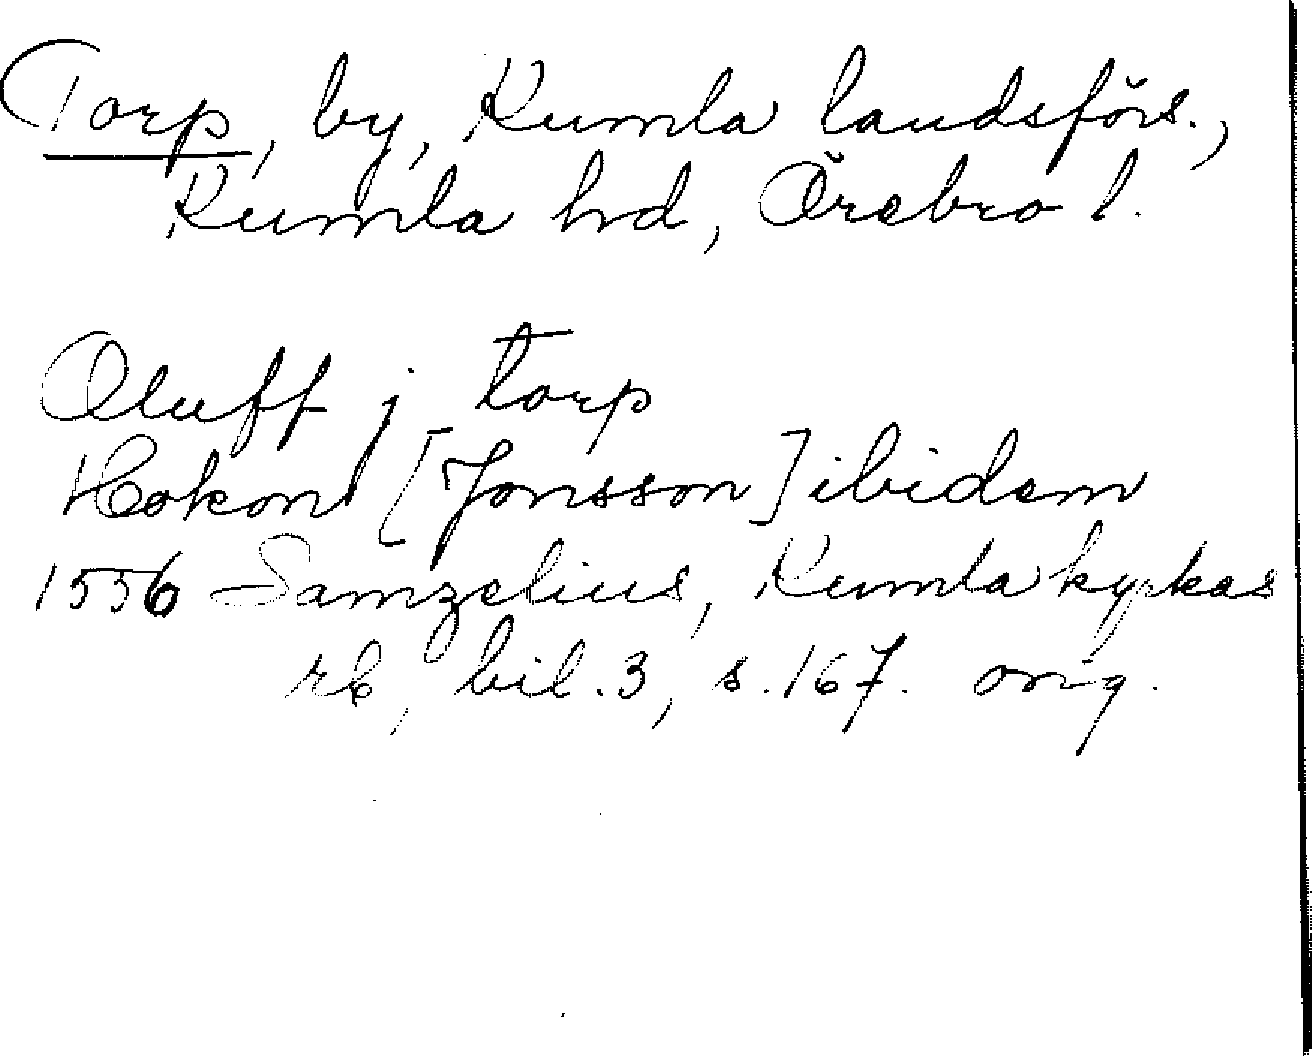 Torp, by, Kumla landsförs.,
Kumla hd, Örebro l.
Oluff j torp
Hokon [Jonsson] ibidem
1556 Samzelius, Kumla kyrkas
rb, bil. 3, s. 167. orig.